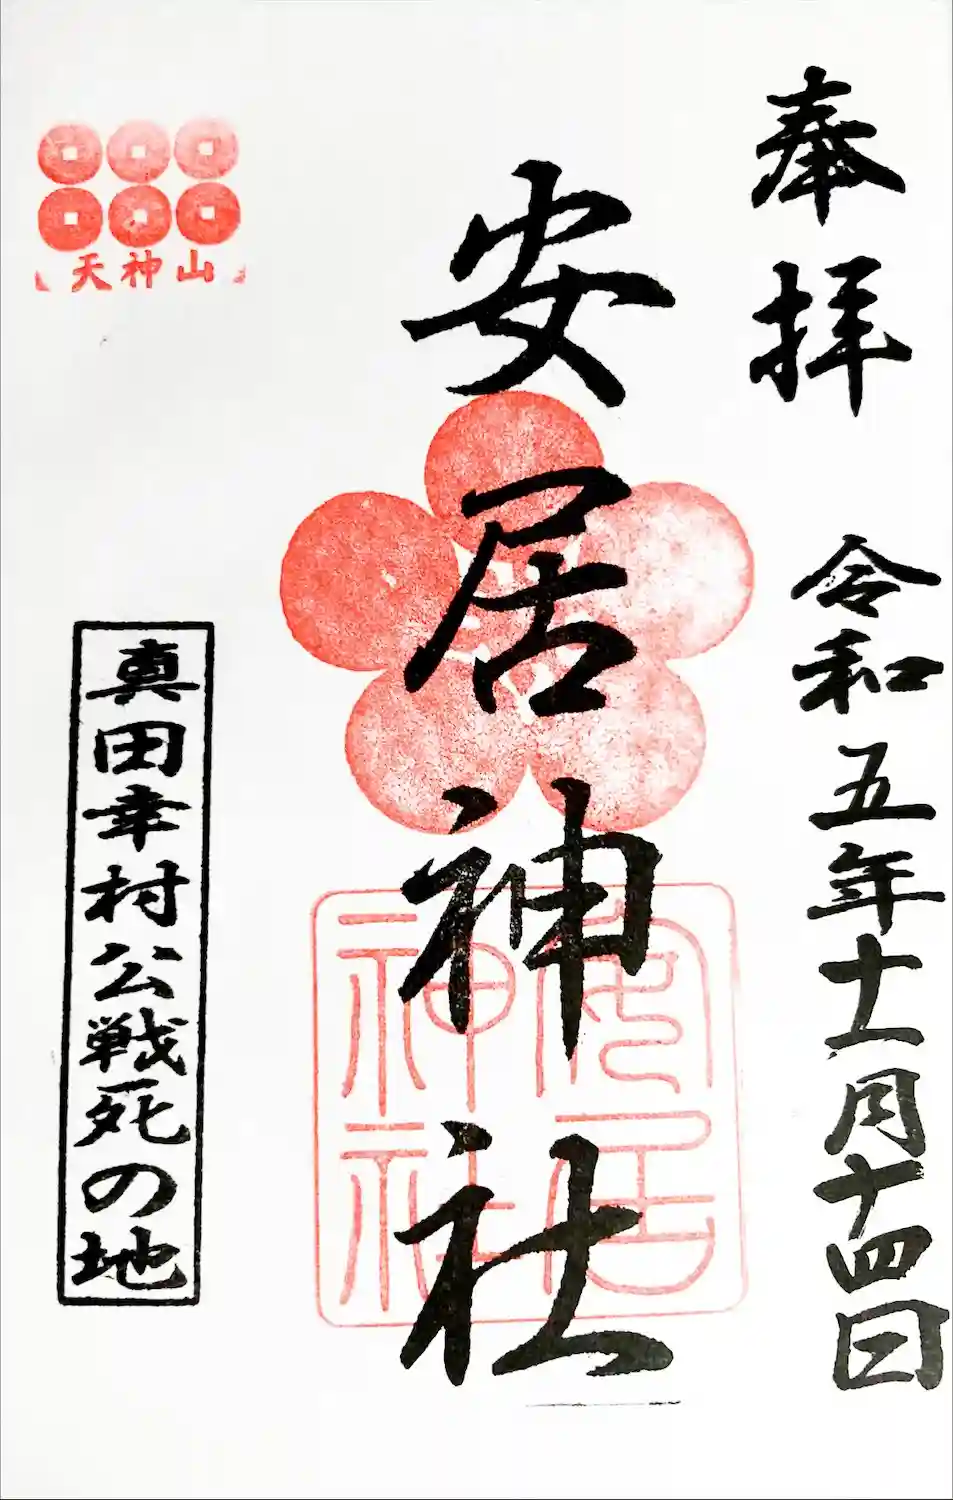 奉拝
令和五年十一月十四日
安居神社
安居
神社
天神山
真田幸村公戦死の地